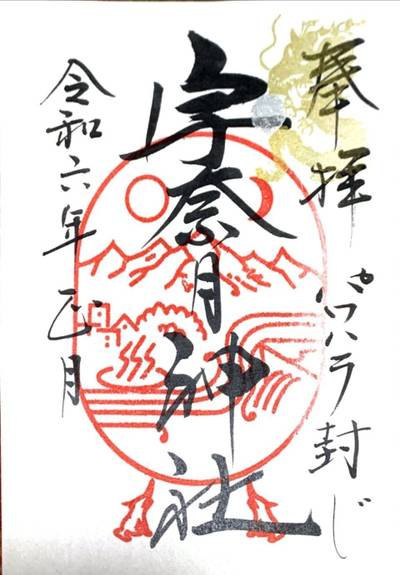 奉拝 パワハラ封じ
宇奈月神社
令和六年 正月